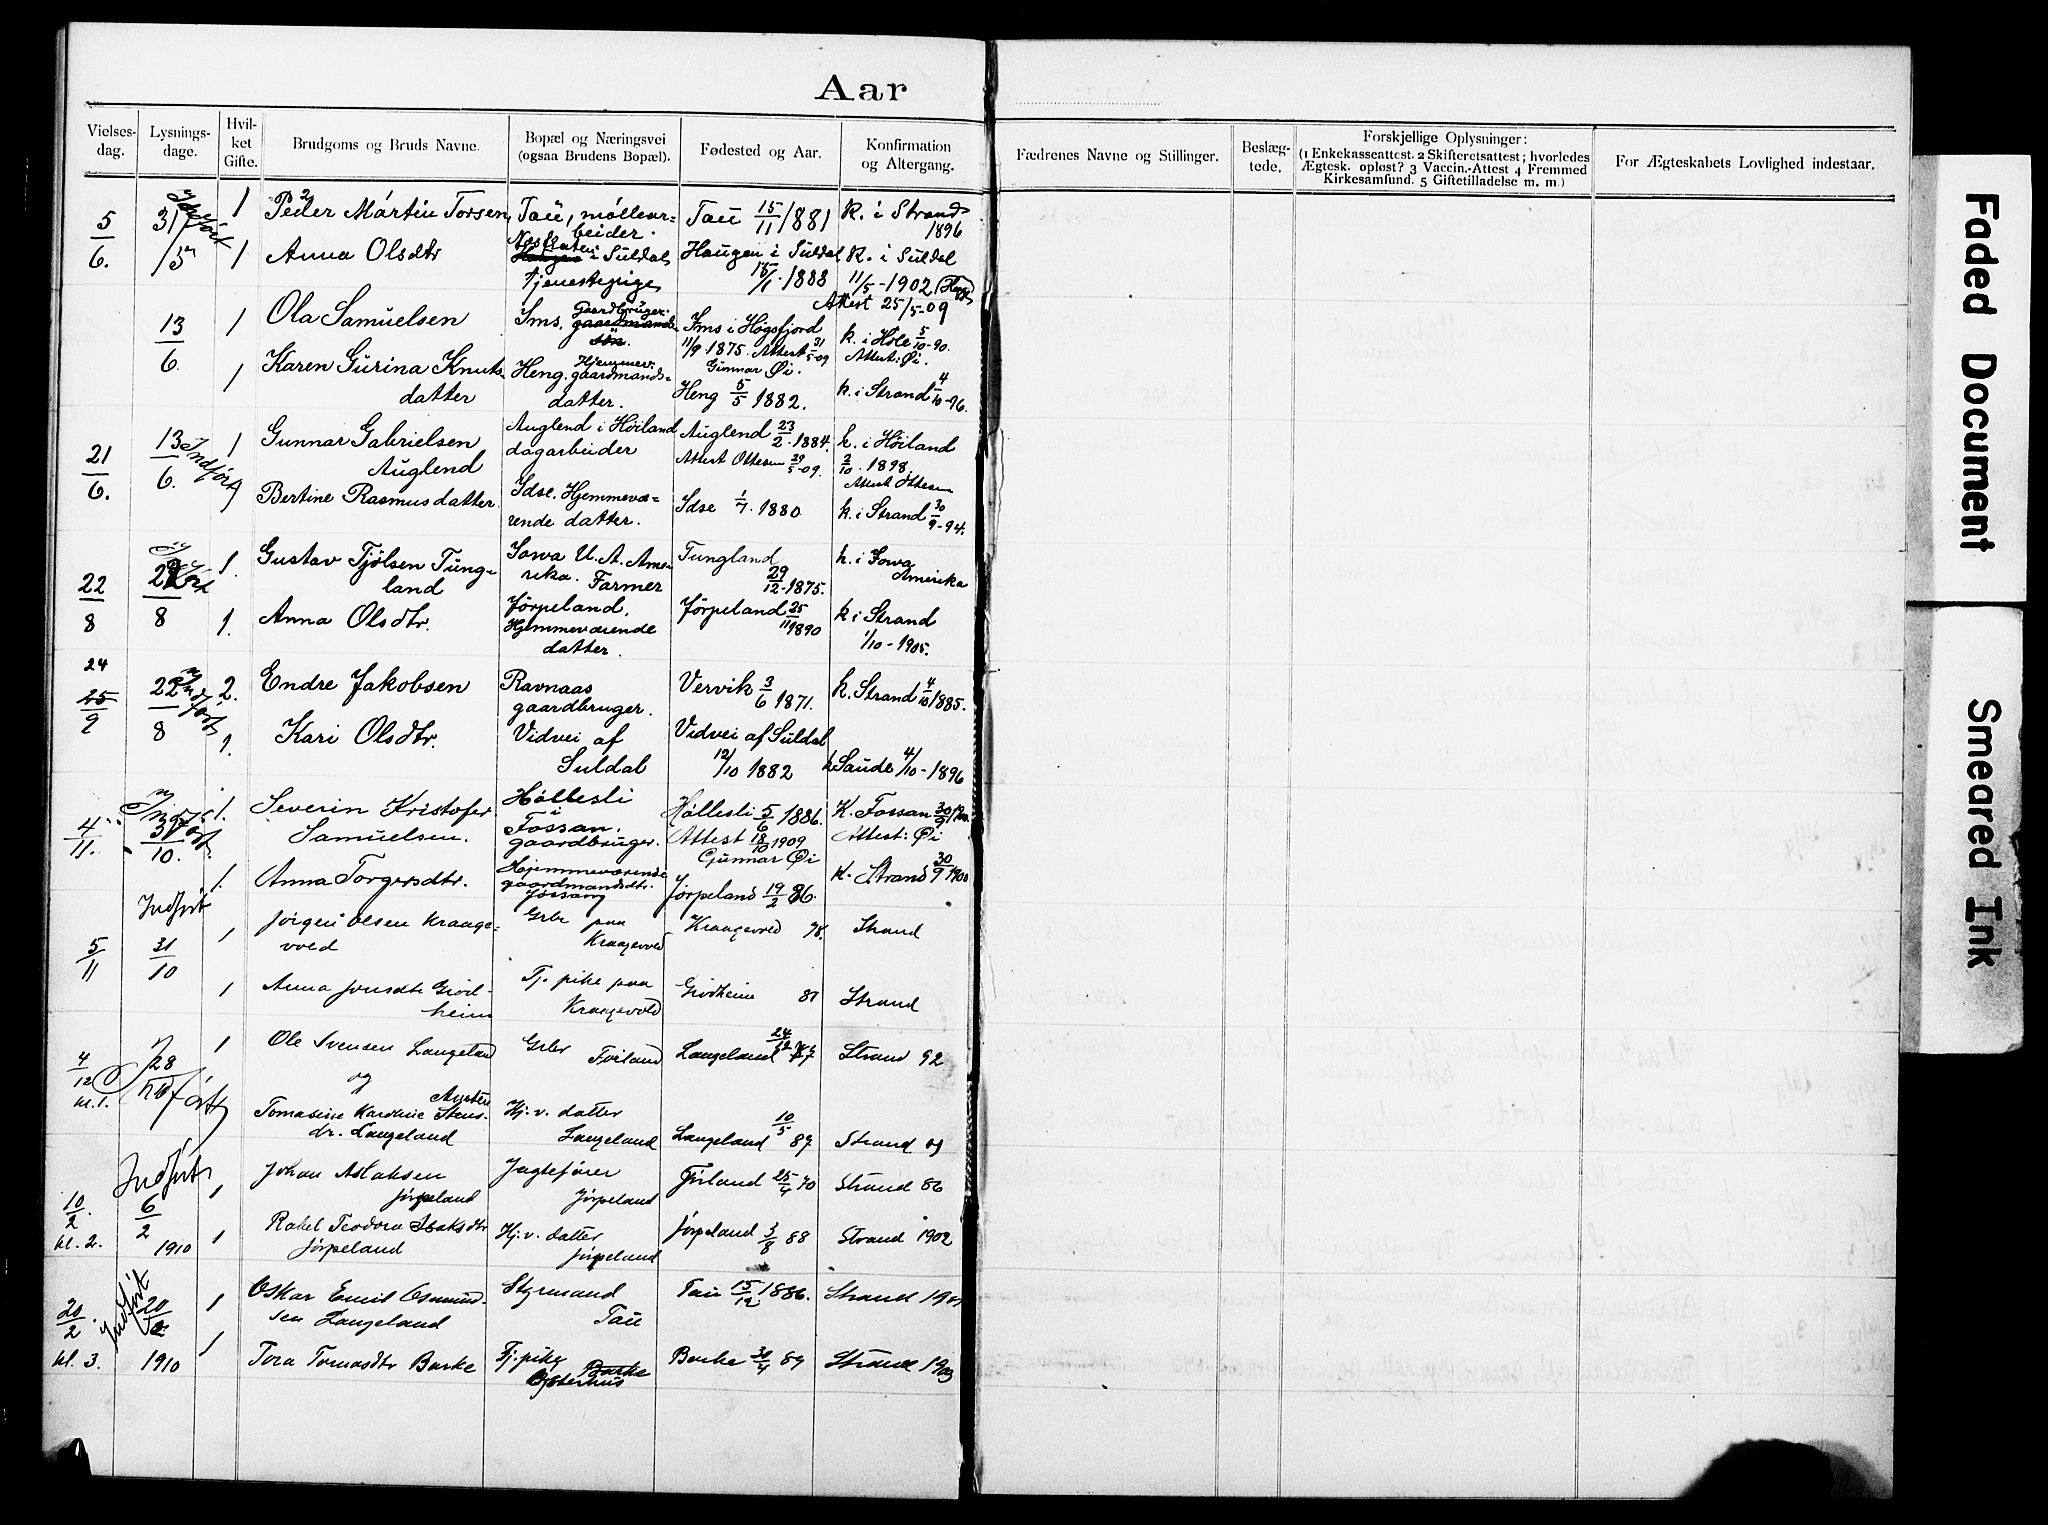 Aar
Vielses-dag.
Lysnings-dage.
Hvil-ket Gifte.
Brudgoms og Bruds Navne.
Bopæl og Næringsvei (ogsaa Brudens Bopæl).
Fødested og Aar.
Konfirmation og Altergang.
Fædrenes Navne og Stillinger.
Beslæg-tede.
Forskjellige Oplysninger: (1 Enkekasseattest. 2 Skifteretsattest; hvorledes Ægtesk. opløst? 3 Vaccin.-Attest 4 Fremmed Kirkesamfund. 5 Giftetilladelse m. m.)
For Ægteskabets Lovlighed indestaar.
5/6. 31/5 Indført 1 Peder Martin Torsen, Tau, møllear-beider. Tau 15/11 1881 K. i Strand 1896
1 Anna Olsdtr i Suldal tjenestepige Haugen i Suldal 15/1 1888 K. i Suldal 11/5-1902
Attest 25/5-09
13/6. 1 Ola Samuelsen Ims, Gaardbruger. gaardmands-søn Ims i Høgsfjord 11/9 1875. Attest 31/5-09 Gunnar Øi. k. i Høle 5/10-90. Attest: Øi.
1 Karen Gurina Knuts-datter Heng. Hjemmev. gaardmands-datter. Heng 5/5 1882. k. i Strand 4/10-96.
21/6. 13/6. Indført 1 Gunnar Gabrielsen Auglend Auglend i Høiland dagarbeider Auglend 23/2. 1884. Attest Ottesen 29/5-09. k. i Høiland 2/10. 1898. Attest Ottesen
Bertine Rasmusdatter Idse. Hjemmevæ-rende datter. Idse 1/7. 1880. k. i Strand 30/9-94.
22/8 22/8 Indført 1. Gustav Tjølsen Tung-land Iowa U. A. Ame-rika. Farmer Tungland 29/12-1875. k. i Iowa Amerika
1. Anna Olsdtr. Jørpeland. Hjemmeværende datter. Jørpeland 25/11 1890 k. i Strand 1/10-1905.
24
25/9 22/8 Indført 2. Endre Jakobsen Ravnaas gaardbruger. Vervik 3/6 1871. k. Strand 4/10 1885.
1. Kari Olsdtr. Vidvei af Suldal Vidvei af Suldal 12/10 1882 k Saude 4/10-1896
4/11. 31/10. Indført 1. Severin Kristofer Samuelsen. Høllesli i Fossan. gaardbruger. Høllesli 5/6 1886. Attest 18/10 1909 Gunnar Øi K. Fossan 30/9 Attest: Øi
1. Anna Torgersdtr. Hjemmeværende gaardmandsdtr. Jøssang Jørpeland 19/2 86. K. Strand 30/9 1900
Indført
5/11 31/10 1 Jørgen Olsen Kraage-vold Grbr paa Kraagevold Kraagevold 78. Strand
1 Anna Jonsdtr Grød-heim Tj. pike paa Kraagevold Grødheim 81 Strand
4/12 kl. 1. 28/11 Indført 1 Ole Svensen Langeland Grbr Langeland 24/12 77 Strand 92
og
Tomasine Karoline Stens-dr. Langeland Hj. v. datter Langeland Langeland 10/5 87 Strand 03
10/2. kl. 2. Indført 6/2 1910 1 Johan Aslaksen Jørpeland Jagtefører Jørpeland 25/4 70 Strand 86
1 Rakel Teodora Isaksdtr Jørpeland Hj. v. datter Jørpeland Jørpeland 3/8 88 Strand 1902
20/2 kl. 3. Indført 20/2 1910 1 Oskar Emil Osmund-sen Langeland Styrmand Tau Tau 15/12 1886. Strand
1 Tora Tomasdtr Barke Tj. pike Barke Barke 30/4 89 Strand 1903
Faded Document
Smeared Ink